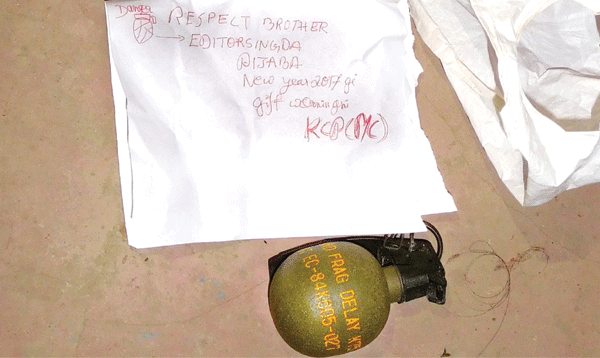 Danger
RESPECT BROTHER
EDITORSINGDA
PIJABA
New year 2017 gi
gift warning ni
KCP(MC)
FRAG DELAY
EC-84K
05-027